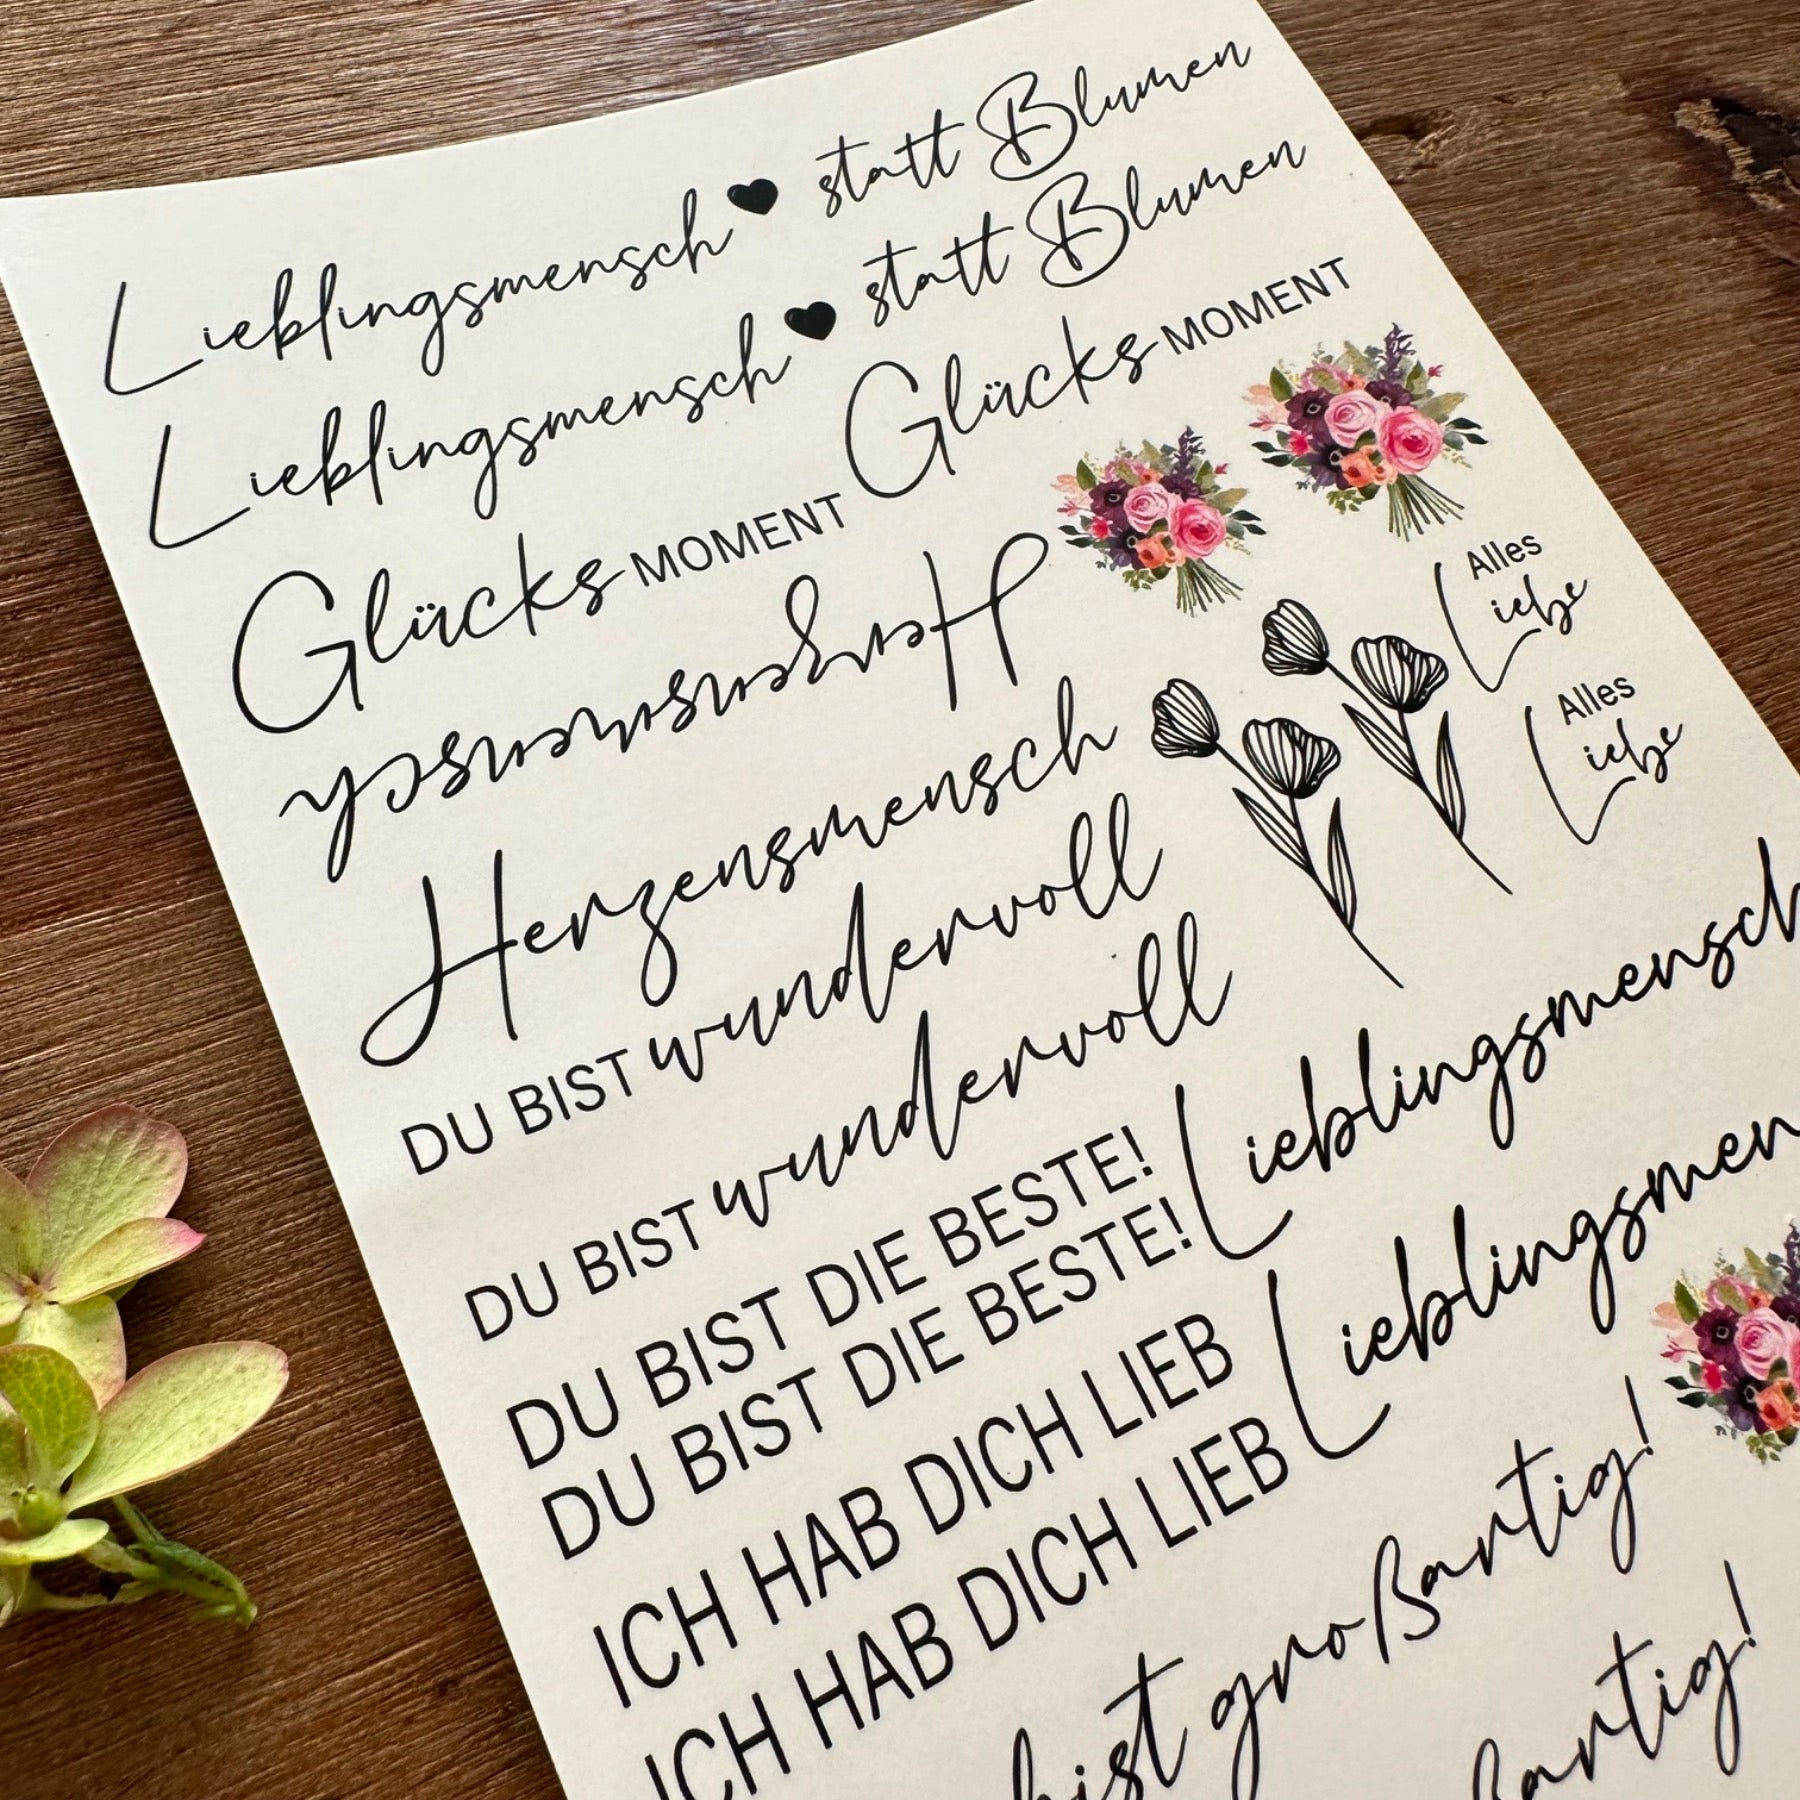 Lieblingsmensch statt Blumen
Lieblingsmensch statt Blumen
GlücksMOMENT GlücksMOMENT
Herzensmensch
Herzensmensch
Alles
Liebe
Alles
Liebe
DU BIST wundervoll
DU BIST wundervoll
DU BIST DIE BESTE! Lieblingsmensch
DU BIST DIE BESTE!
ICH HAB DICH LIEB Lieblingsmen
ICH HAB DICH LIEB
bist großartig!
artig!